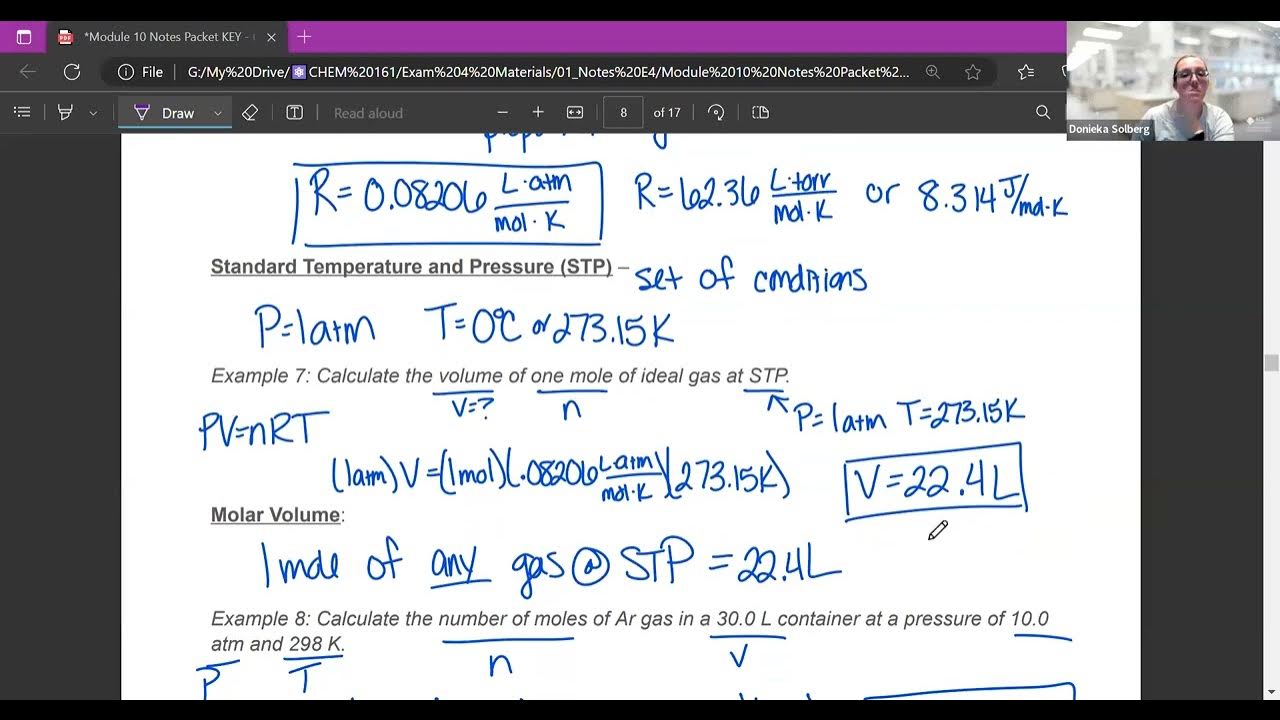 *Module 10 Notes Packet KEY -
File G:/My%20Drive/ CHEM%20161/Exam%204%20Materials/01_Notes%20E4/Module%2010%20Notes%20Packet%2...
Draw Read aloud 8 of 17
Donieka Solberg
R=0.08206 L·atm/mol·K R=62.36 L·torr/mol·K or 8.314 J/mol·K
Standard Temperature and Pressure (STP) – set of conditions
P=1atm T=0°C or 273.15K
Example 7: Calculate the volume of one mole of ideal gas at STP.
V=? n P=1atm T=273.15K
PV=nRT
(1atm)V=(1mol)(.08206 L·atm/mol·K)(273.15K) V=22.4L
Molar Volume:
1 mole of any gas @ STP = 22.4L
Example 8: Calculate the number of moles of Ar gas in a 30.0 L container at a pressure of 10.0
atm and 298 K.
n V
P T